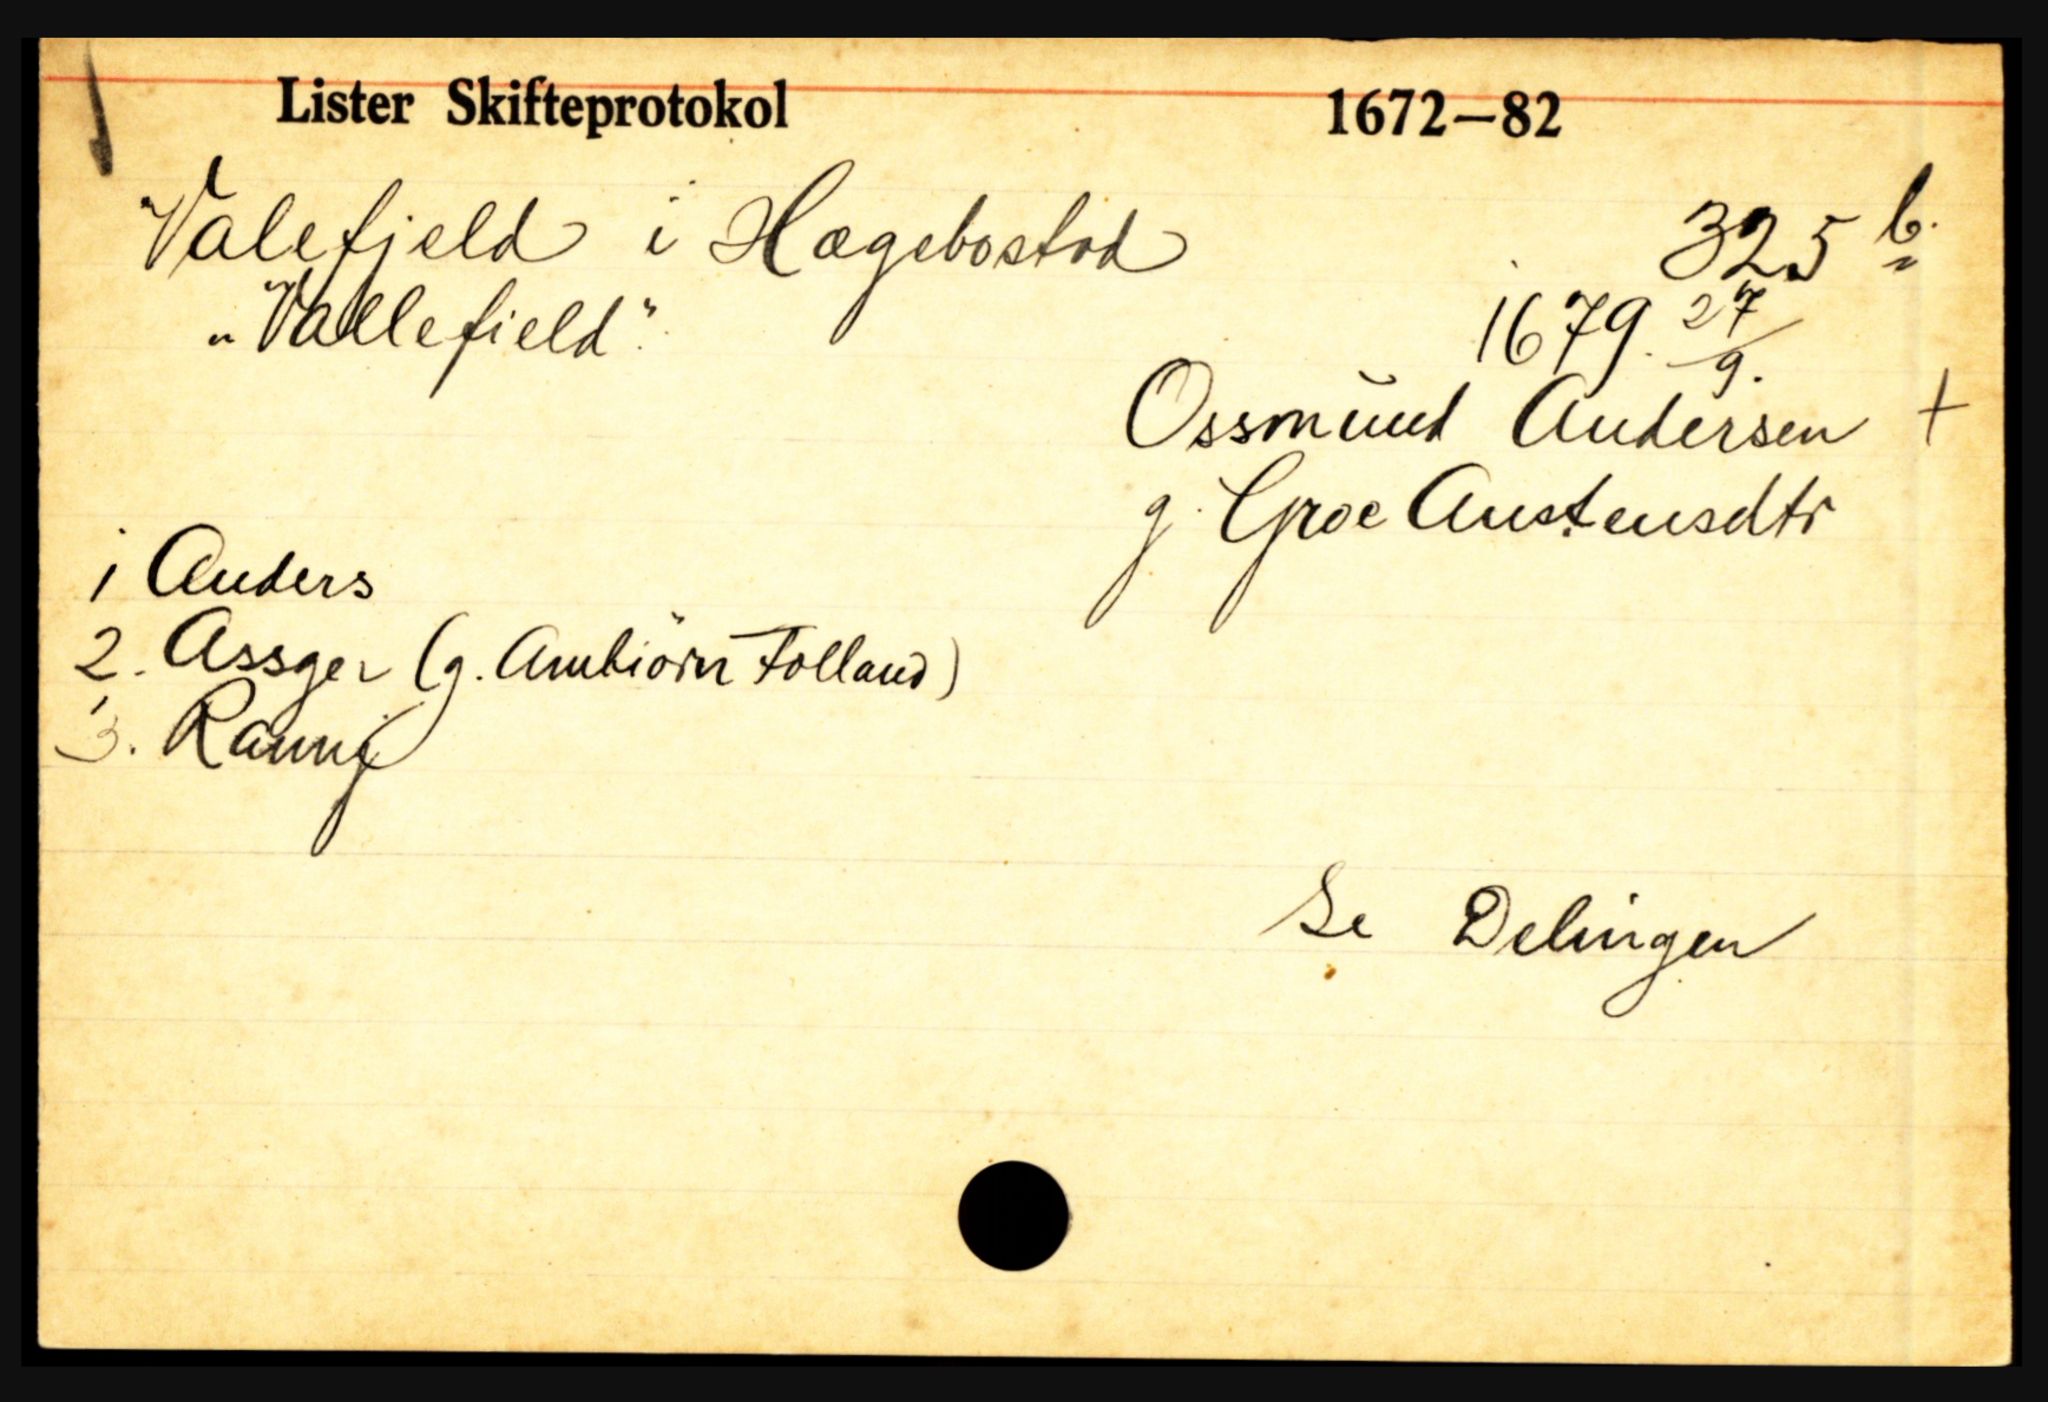 Lister Skifteprotokol 1672—82
Valefjeld i Hægebostad 325 b.
"Vallefield". 1679. 27/9.
Ossmund Andersen +
g. Groe Austensdtr
1 Anders
2. Assger (g. Ambiörn Folland)
3. Ranni
Se Delingen